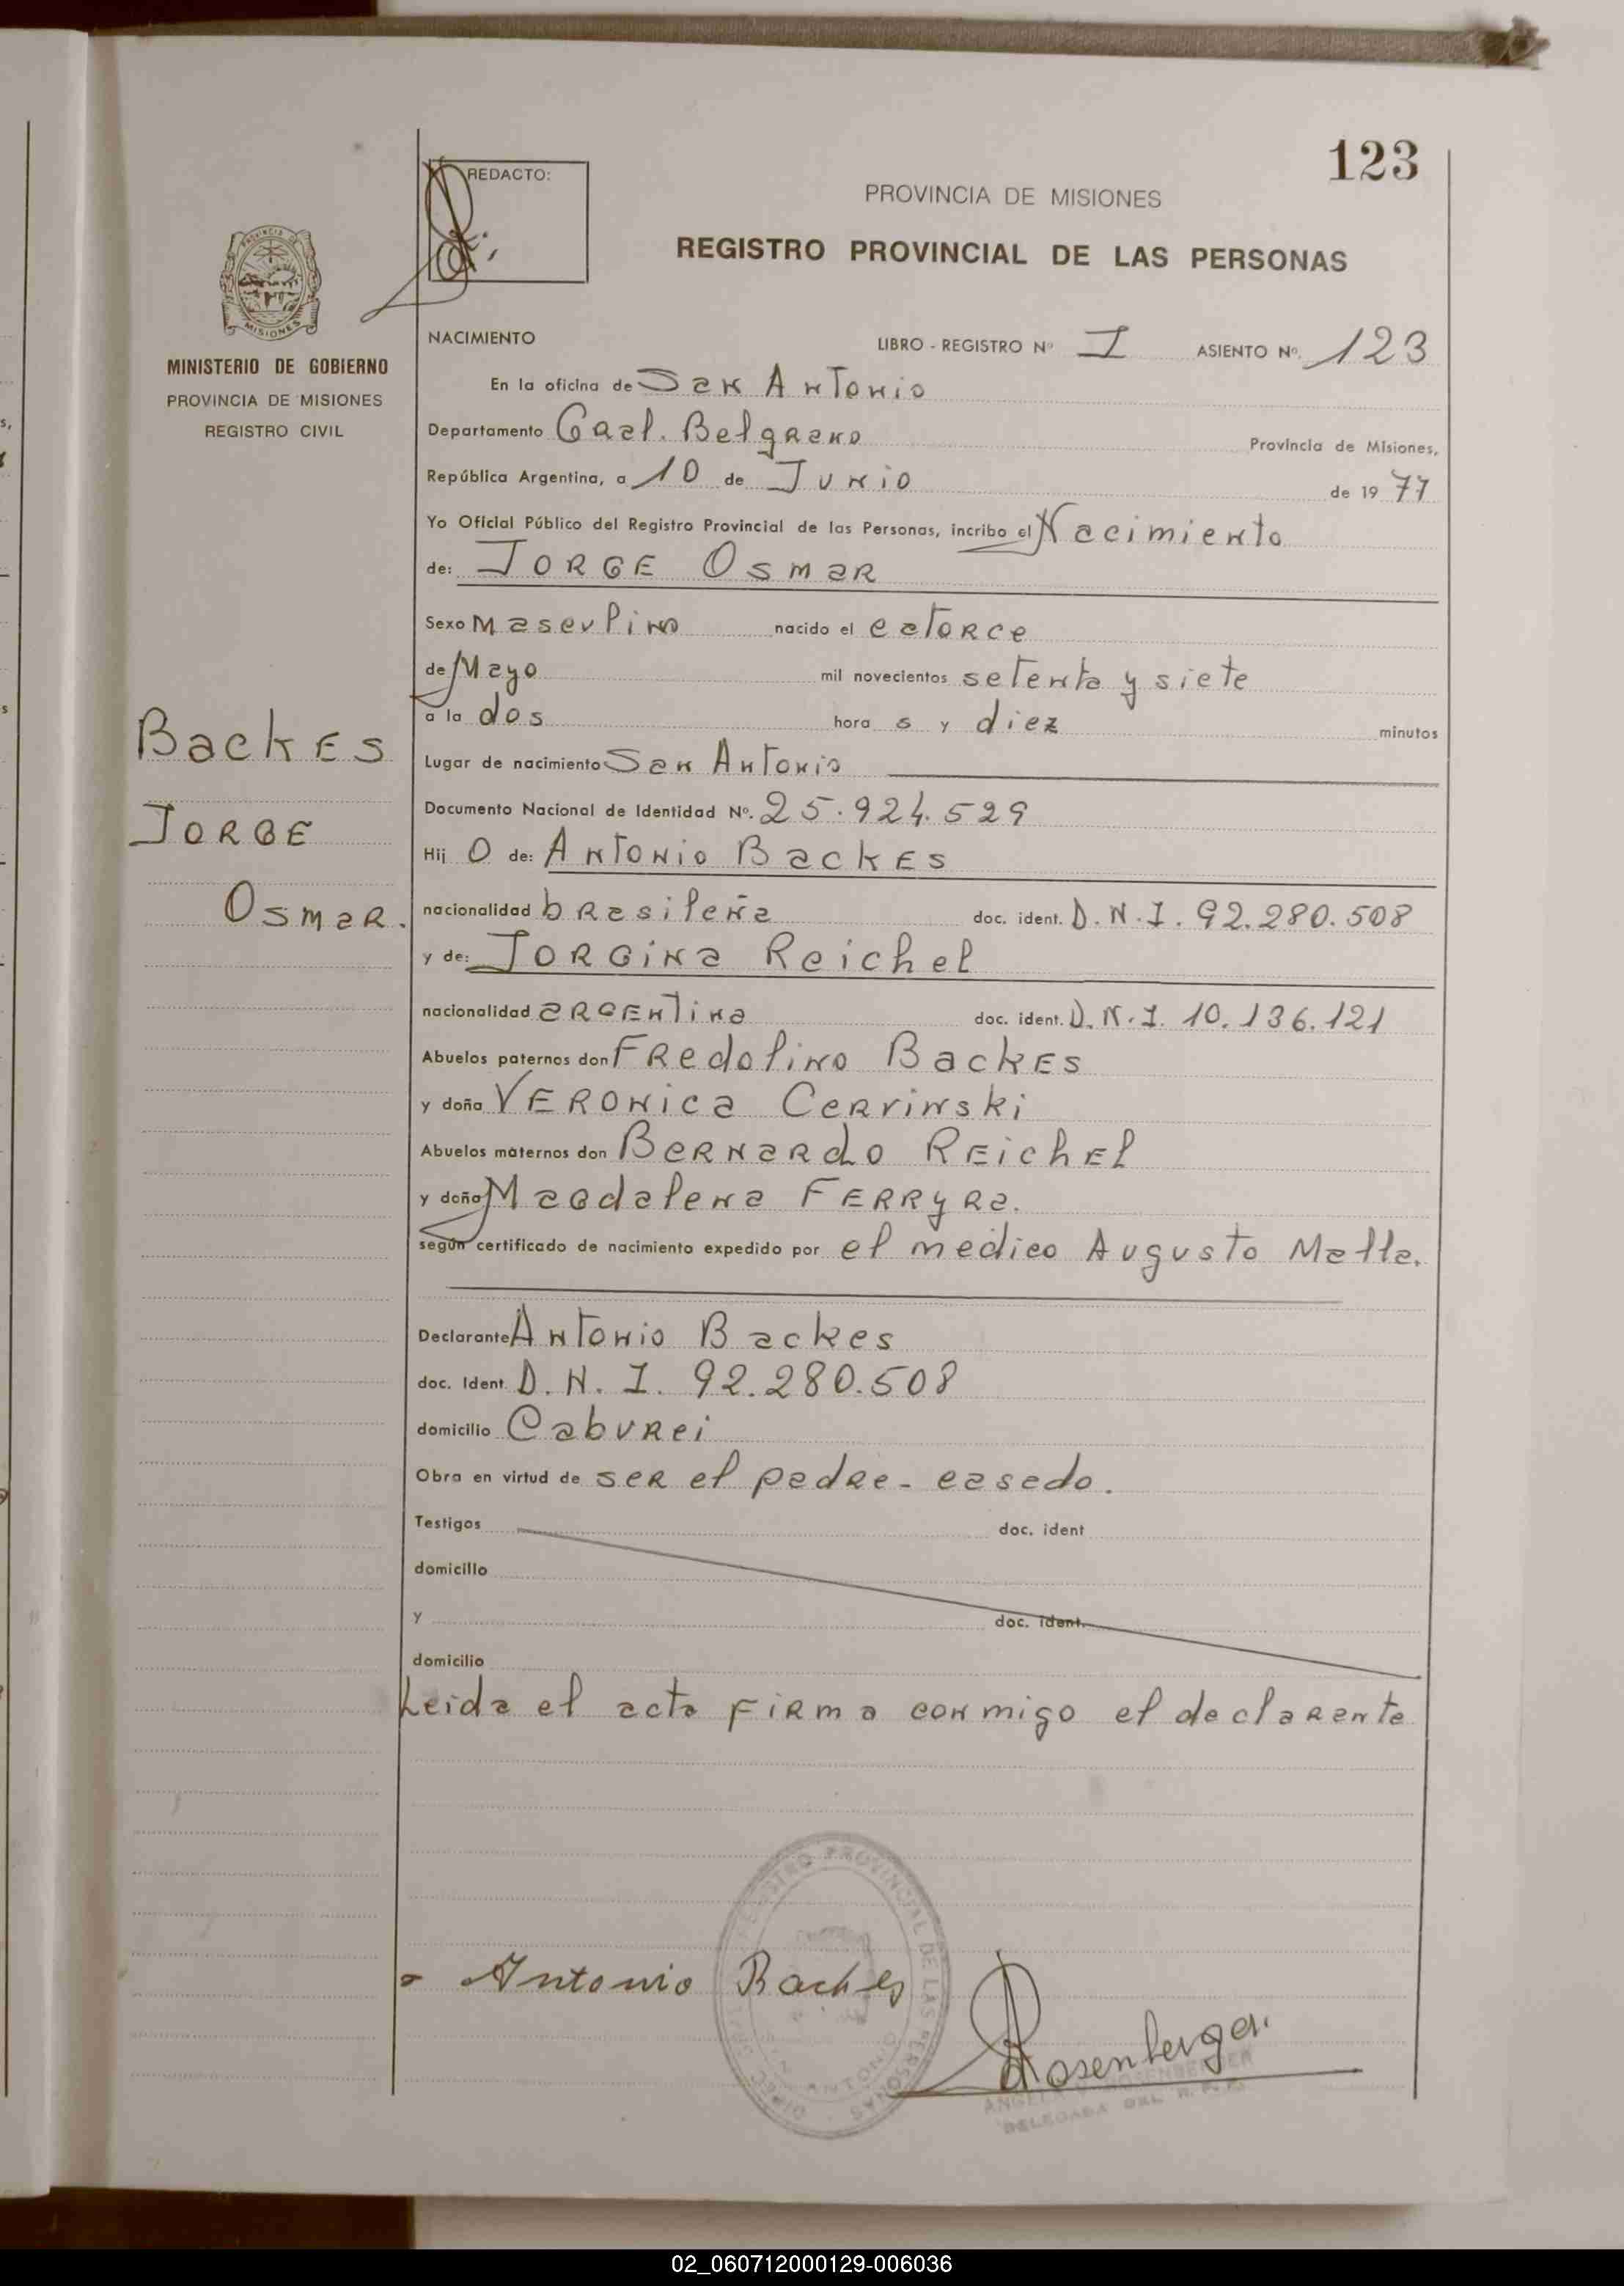 123
REDACTO:
PROVINCIA DE MISIONES
REGISTRO PROVINCIAL DE LAS PERSONAS
MINISTERIO DE GOBIERNO
PROVINCIA DE MISIONES
REGISTRO CIVIL
Backes
Jorge
Osmar.
NACIMIENTO LIBRO - REGISTRO Nº I ASIENTO Nº 123
En la oficina de San Antonio
Departamento Gral. Belgrano Provincia de Misiones,
República Argentina, a 10 de Junio de 1977
Yo Oficial Público del Registro Provincial de las Personas, incribo el Nacimiento
de: Jorge Osmar
Sexo Masculino nacido el catorce
de Mayo mil novecientos setenta y siete
a la dos hora s y diez minutos
Lugar de nacimiento San Antonio
Documento Nacional de Identidad Nº. 25.924.529
Hij o de: Antonio Backes
nacionalidad brasileña doc. ident. D.N.I. 92.280.508
y de: Jorgina Reichel
nacionalidad argentina doc. ident. D.N.I. 10.136.121
Abuelos paternos don Fredolino Backes
y doña Veronica Cervinski
Abuelos maternos don Bernardo Reichel
y doña Magdalena Ferryra.
según certificado de nacimiento expedido por el medico Augusto Matta.
Declarante Antonio Backes
doc. Ident. D.N.I. 92.280.508
domicilio Caburei
Obra en virtud de ser el padre - casado.
Testigos doc. ident
domicilio
y doc. ident.
domicilio
Leida el acta firma conmigo el declarante
Antonio Backes
Rosenberger.
DELEGADA DEL R. P. P.
02_060712000129-006036